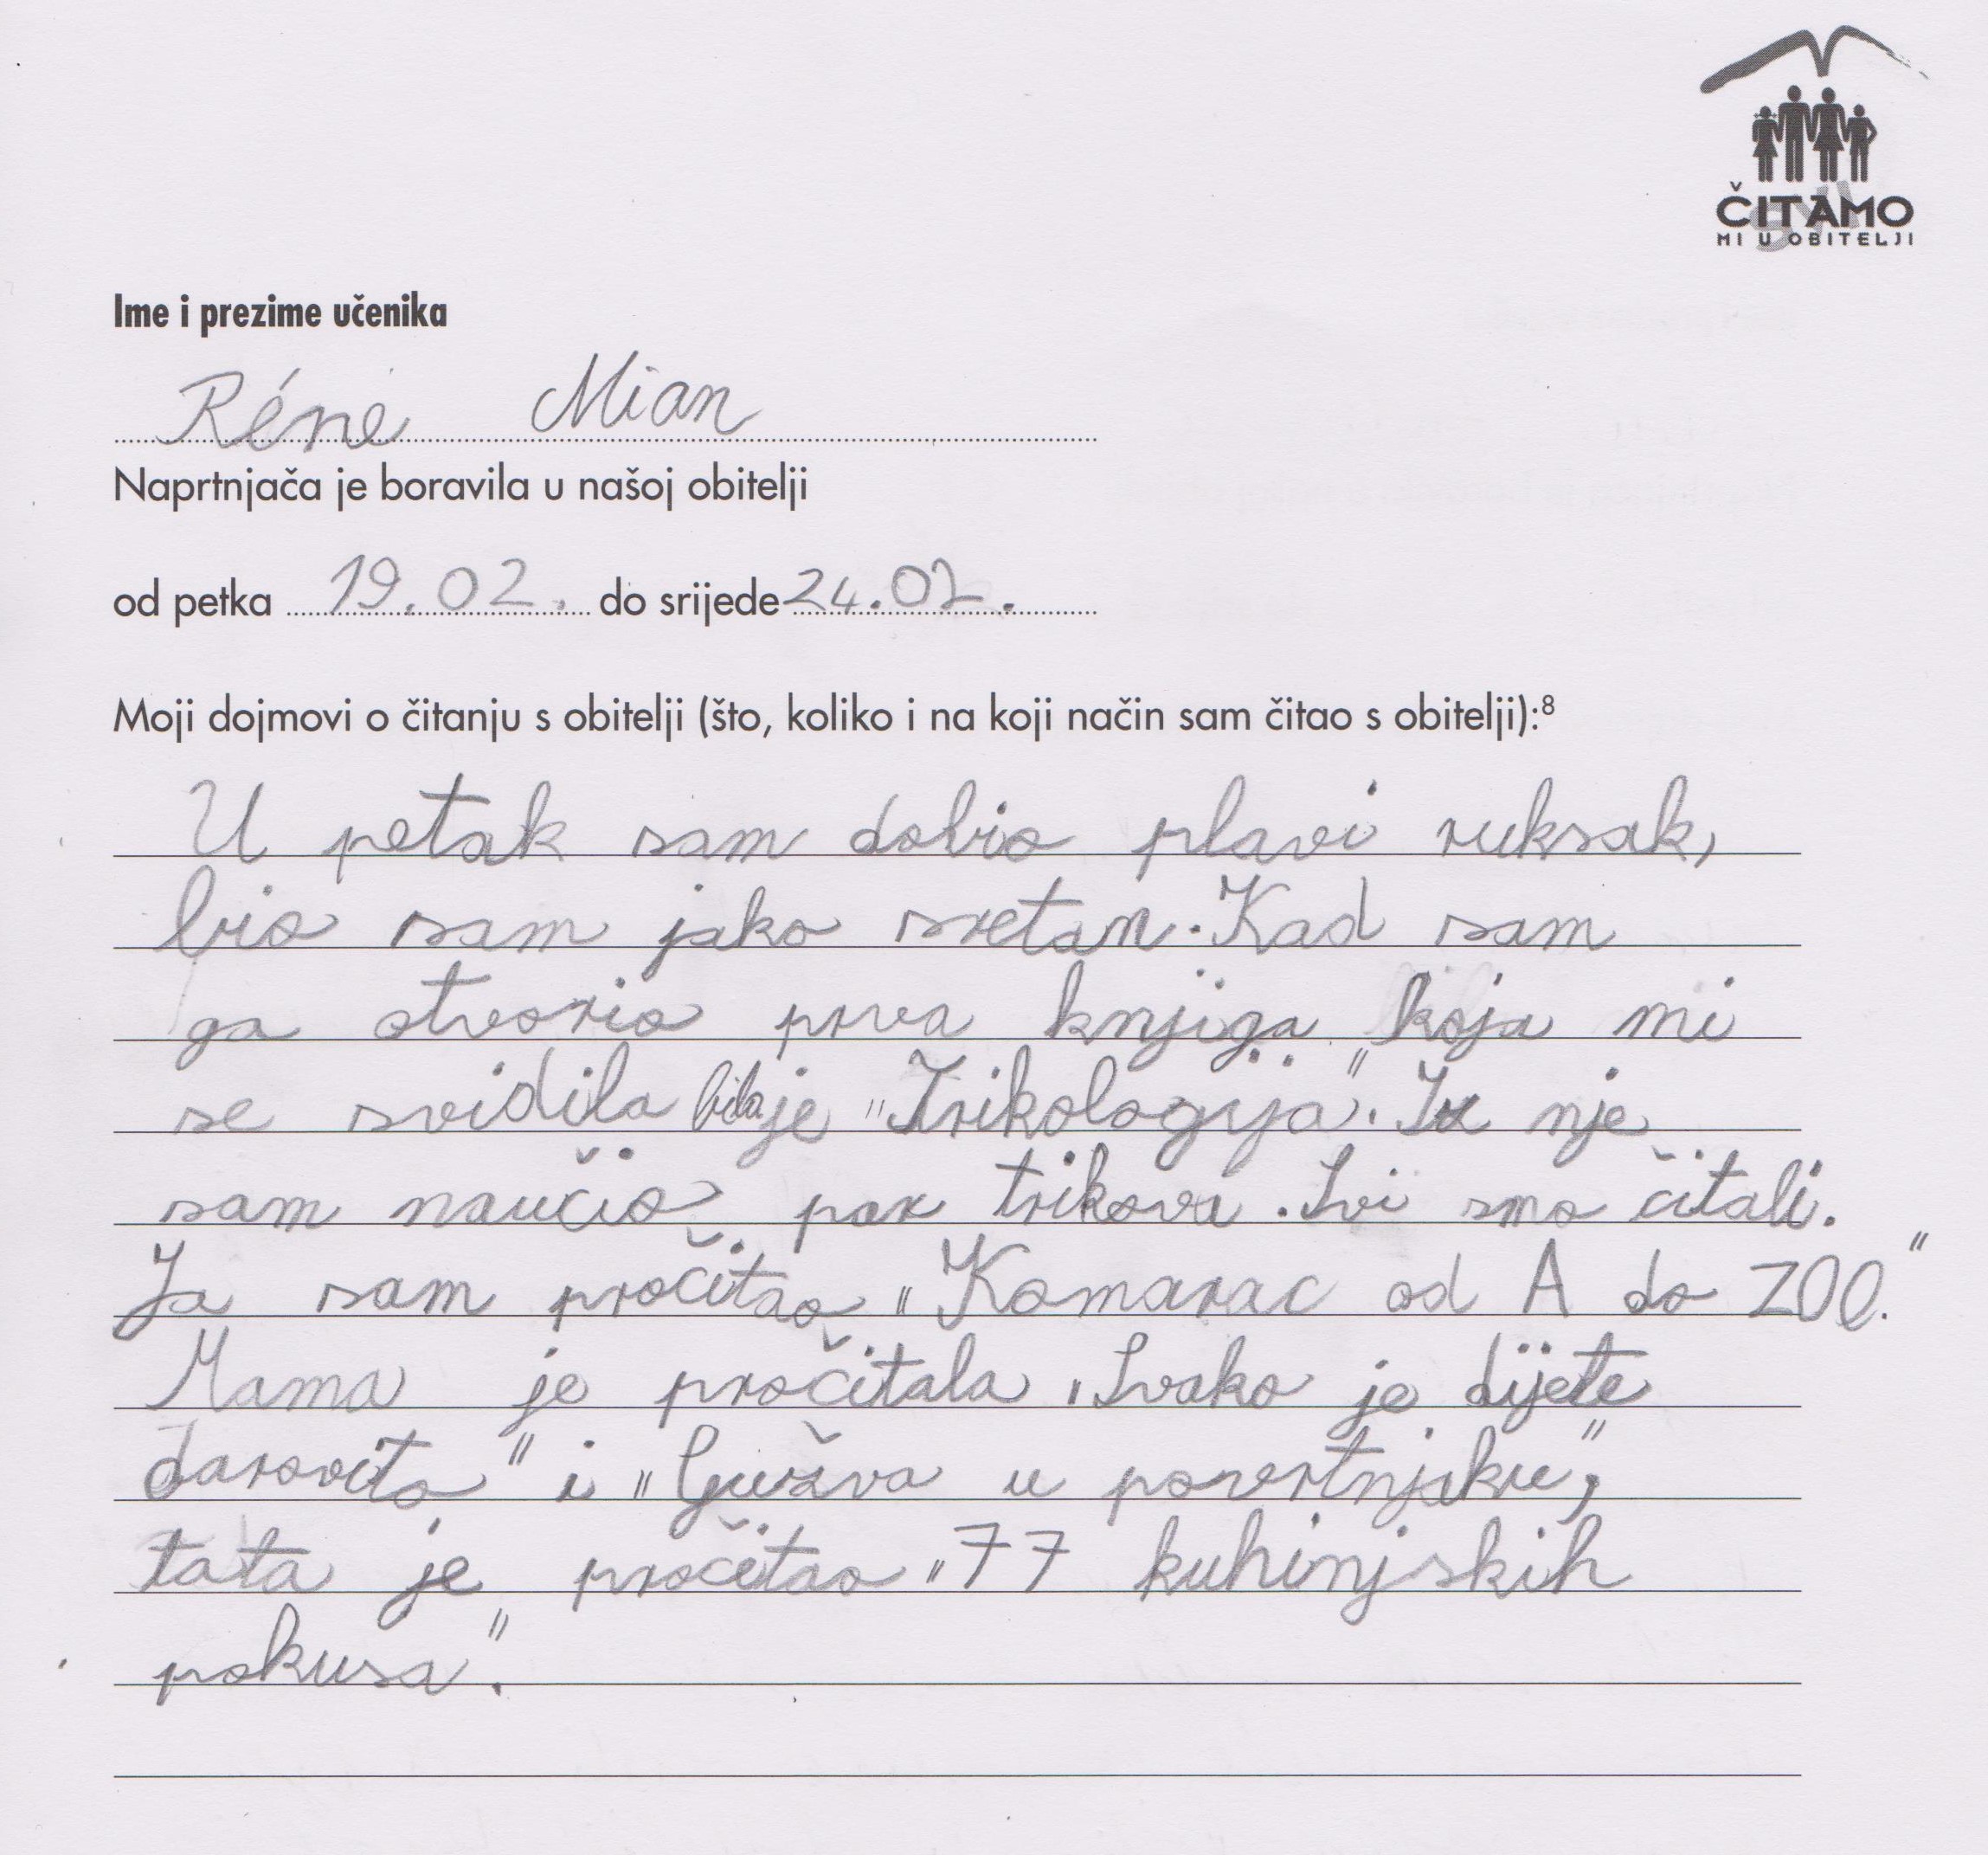 ČITAMO
MI U OBITELJI
Ime i prezime učenika
Réne Mian
Naprtnjača je boravila u našoj obitelji
od petka 19.02. do srijede 24.02.
Moji dojmovi o čitanju s obitelji (što, koliko i na koji način sam čitao s obitelji):⁸
U petak sam dobio plavi ruksak,
bio sam jako sretan. Kad sam
ga otvorio prva knjiga koja mi
se svidila bila je "Trikologija". Iz nje
sam naučio par trikova. Svi smo čitali.
Ja sam pročitao "Komarac od A do ZOO."
Mama je pročitala "Svako je dijete
darovito" i "Gužva u povrtnjaku",
tata je pročitao "77 kuhinjskih
pokusa".